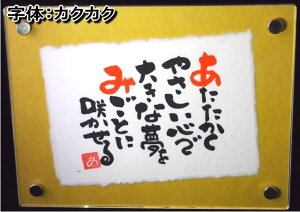 字体:カクカク
あたたかく
やさしい心で
大きな夢を
みごとに
咲かせる
あ